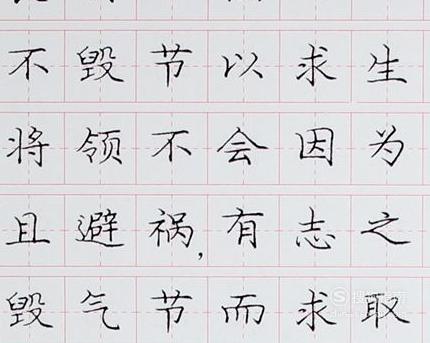 不毁节以求生
将领不会因为
且避祸,有志之
毁气节而求取